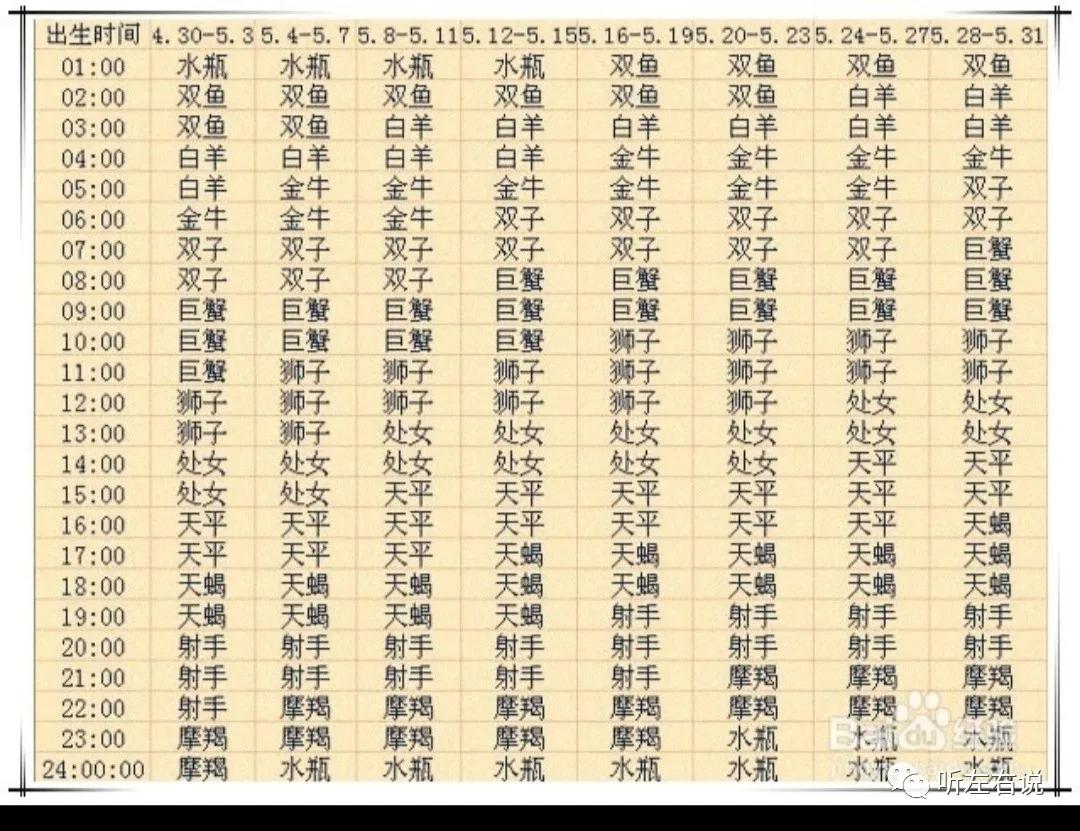 出生时间 4.30-5.3 5.4-5.7 5.8-5.11 5.12-5.15 5.16-5.19 5.20-5.23 5.24-5.27 5.28-5.31
01:00 水瓶 水瓶 水瓶 水瓶 双鱼 双鱼 双鱼 双鱼
02:00 双鱼 双鱼 双鱼 双鱼 双鱼 双鱼 白羊 白羊
03:00 双鱼 双鱼 白羊 白羊 白羊 白羊 白羊 白羊
04:00 白羊 白羊 白羊 白羊 金牛 金牛 金牛 金牛
05:00 白羊 金牛 金牛 金牛 金牛 金牛 金牛 双子
06:00 金牛 金牛 金牛 双子 双子 双子 双子 双子
07:00 双子 双子 双子 双子 双子 双子 双子 巨蟹
08:00 双子 双子 双子 巨蟹 巨蟹 巨蟹 巨蟹 巨蟹
09:00 巨蟹 巨蟹 巨蟹 巨蟹 巨蟹 巨蟹 巨蟹 巨蟹
10:00 巨蟹 巨蟹 巨蟹 巨蟹 狮子 狮子 狮子 狮子
11:00 巨蟹 狮子 狮子 狮子 狮子 狮子 狮子 狮子
12:00 狮子 狮子 狮子 狮子 狮子 狮子 处女 处女
13:00 狮子 狮子 处女 处女 处女 处女 处女 处女
14:00 处女 处女 处女 处女 处女 处女 天平 天平
15:00 处女 处女 天平 天平 天平 天平 天平 天平
16:00 天平 天平 天平 天平 天平 天平 天平 天蝎
17:00 天平 天平 天平 天蝎 天蝎 天蝎 天蝎 天蝎
18:00 天蝎 天蝎 天蝎 天蝎 天蝎 天蝎 天蝎 天蝎
19:00 天蝎 天蝎 天蝎 天蝎 射手 射手 射手 射手
20:00 射手 射手 射手 射手 射手 射手 射手 射手
21:00 射手 射手 射手 射手 射手 摩羯 摩羯 摩羯
22:00 射手 摩羯 摩羯 摩羯 摩羯 摩羯 摩羯 摩羯
23:00 摩羯 摩羯 摩羯 摩羯 摩羯 水瓶 水瓶 水瓶
24:00:00 摩羯 水瓶 水瓶 水瓶 水瓶 水瓶 水瓶 水瓶
Baidu 经验
听左右说